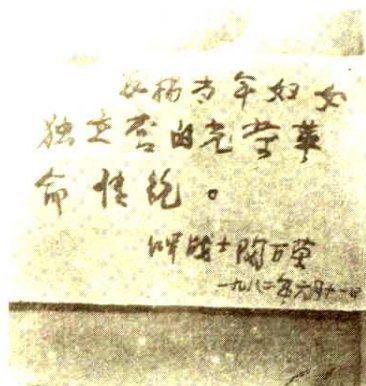 发扬青年妇女
独立营的光荣革
命传统。
红军战士陶万荣
一九八二年六月十一日